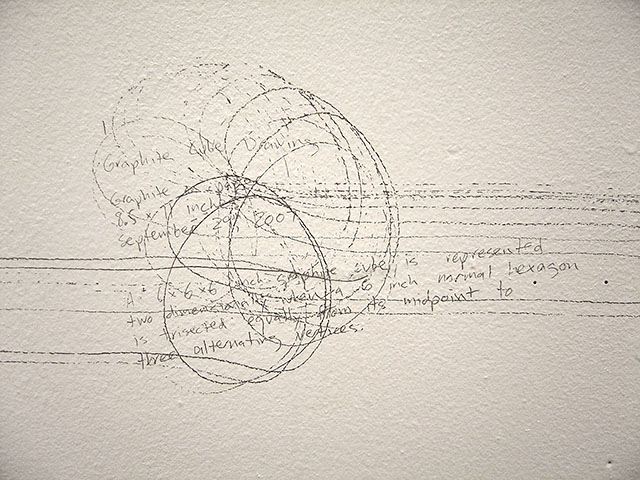 Graphite Cube Drawing
Graphite on paper
8.5 x 11 inches
September 29, 2007
A 6 x 6 x 6 inch graphite cube is represented
two dimensionally when a 6 inch normal hexagon
is trisected equally from its midpoint to
three alternating vertices.